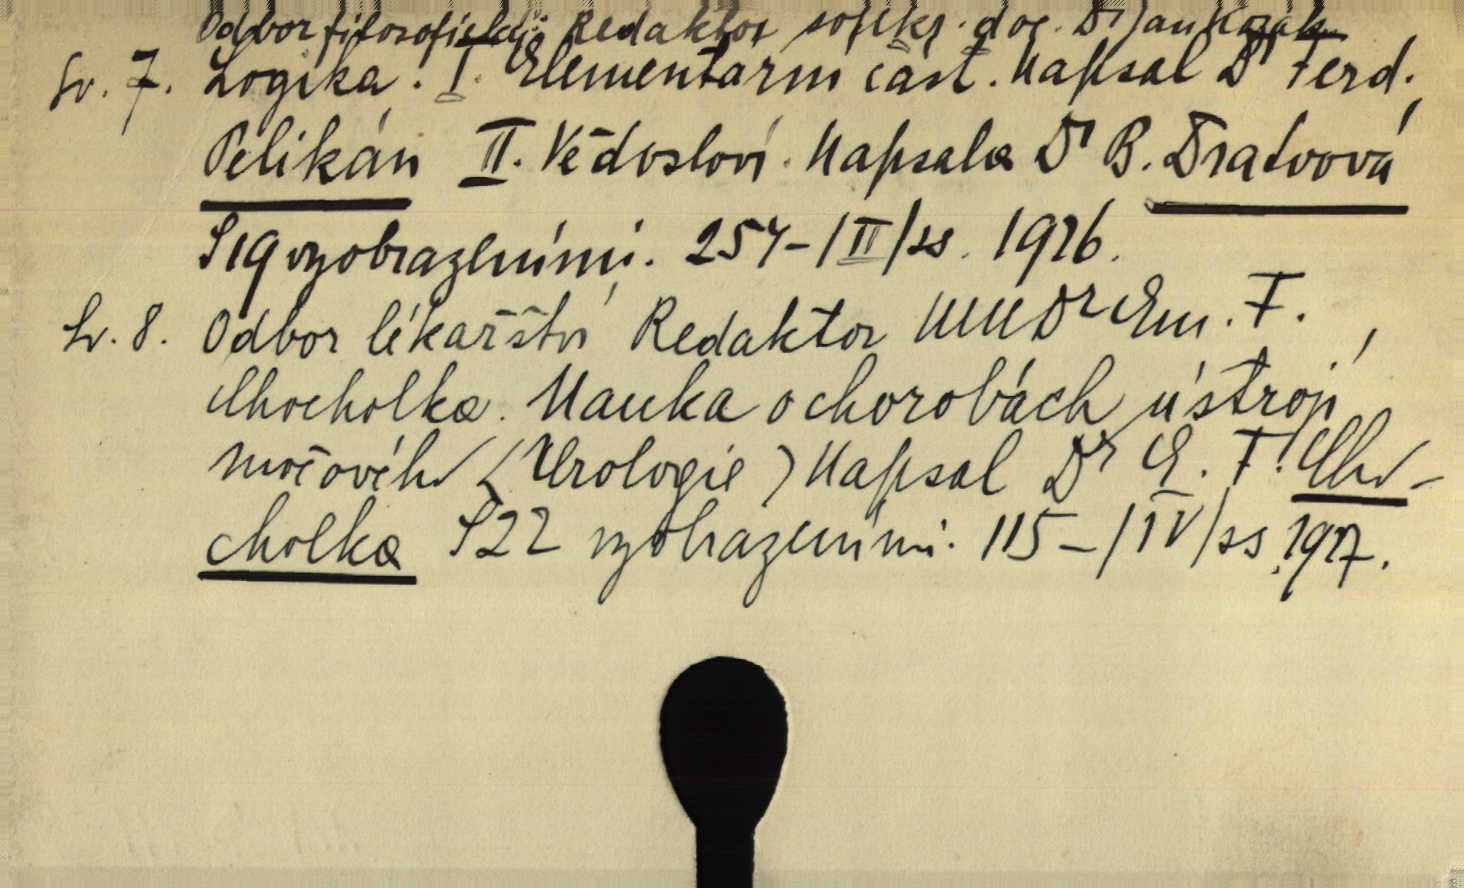 Odbor filosofický. Redaktor soukr. doc. Dr Jan Kozák
Sv. 7. Logika. I. Elementární část. Napsal Dr Ferd.
Pelikán II. Vědosloví. Napsala Dr B. Dratvová
S 19 vyobrazeními. 254-/II/ss. 1926.
Sv. 8. Odbor lékařství Redaktor MUDr Em. F.
Chocholka. Nauka o chorobách ústrojí
močového (Urologie) Napsal Dr E. F. Cho-
cholka S 22 vyobrazeními. 115-/IV/ss. 1927.